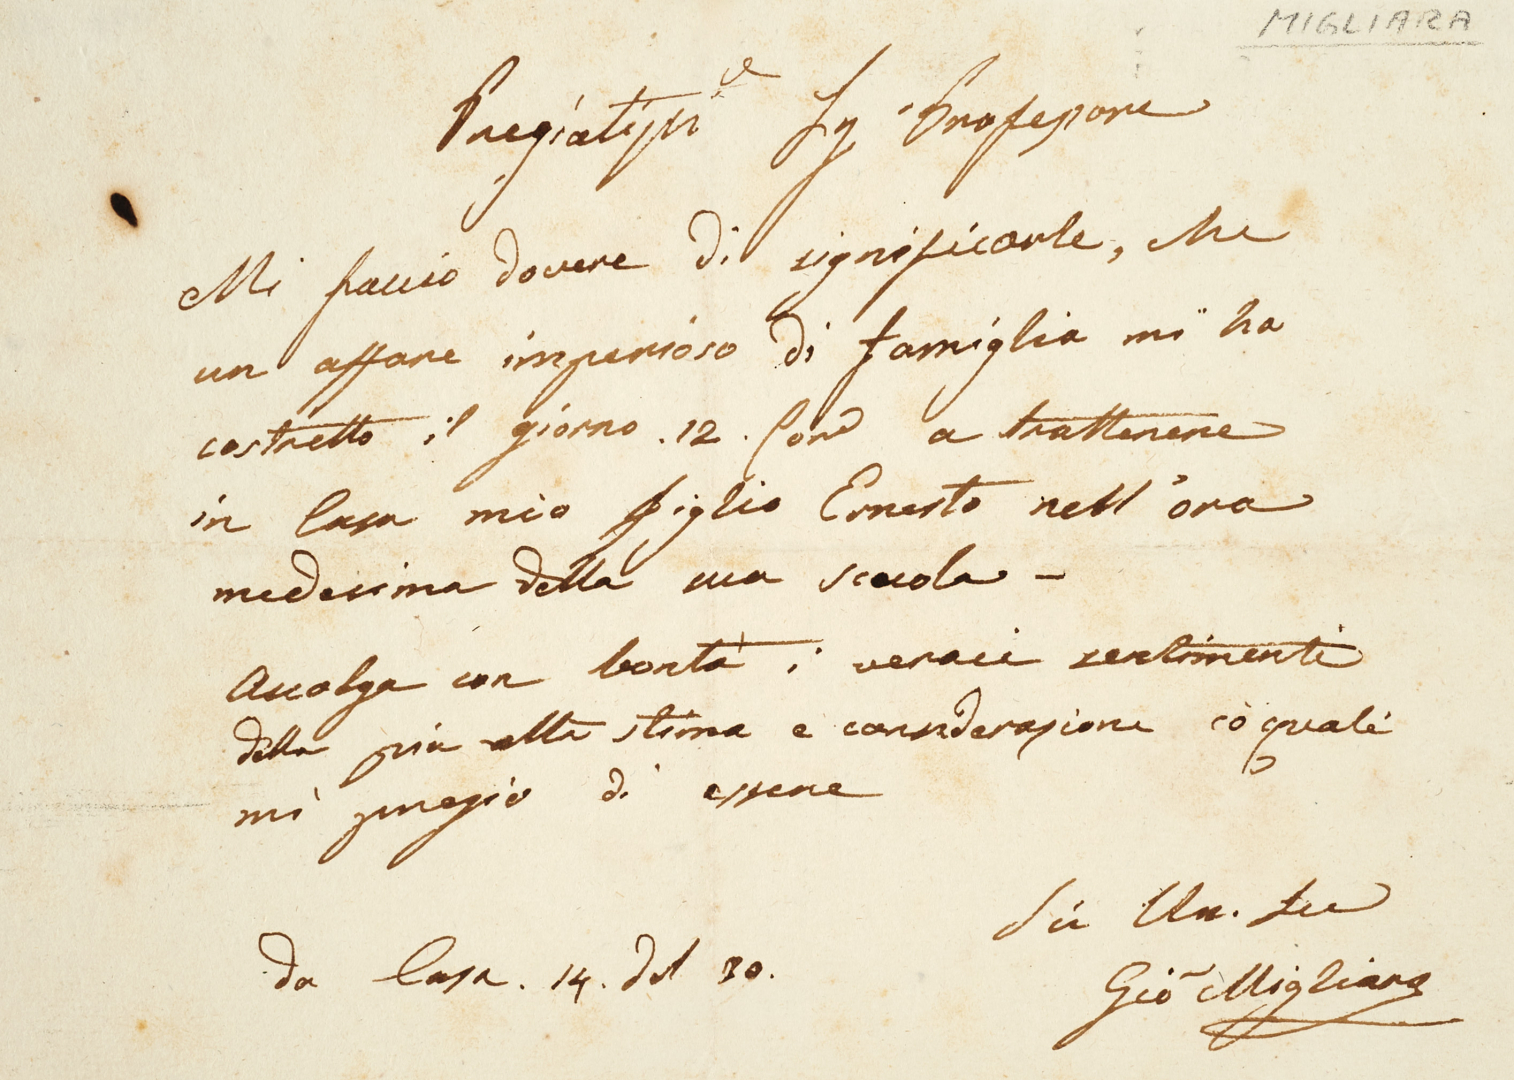 MIGLIARA
Pregiatissmo Sig Professore
Mi faccio dovere di significarle, che
un affare imperioso di famiglia mi ha
costretto il giorno .12. Corre a trattenere
in Casa mio figlio Ernesto nell'ora
medesima della sua scuola –
Accolga con bontà i veraci sentimenti
della più alta stima e considerazione cò quali
mi pregio di essere
Suo Um. Ser
da Casa. 14. del 30.
Gio Migliara